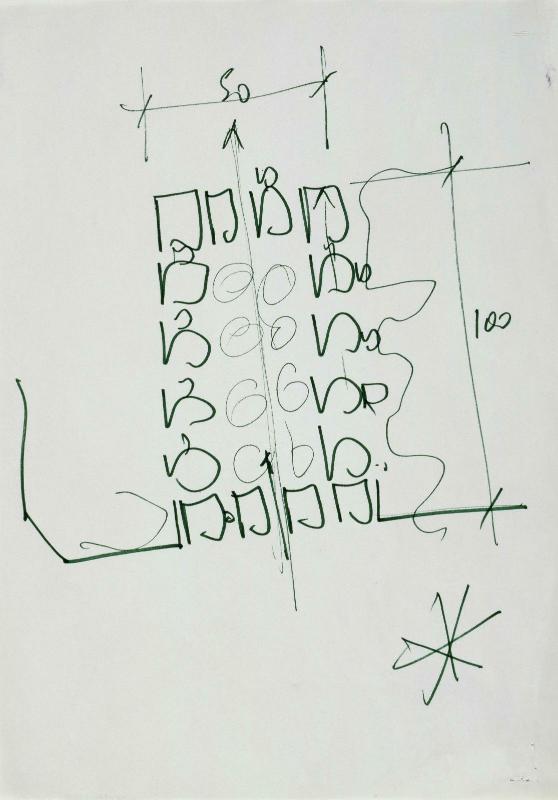 50
100